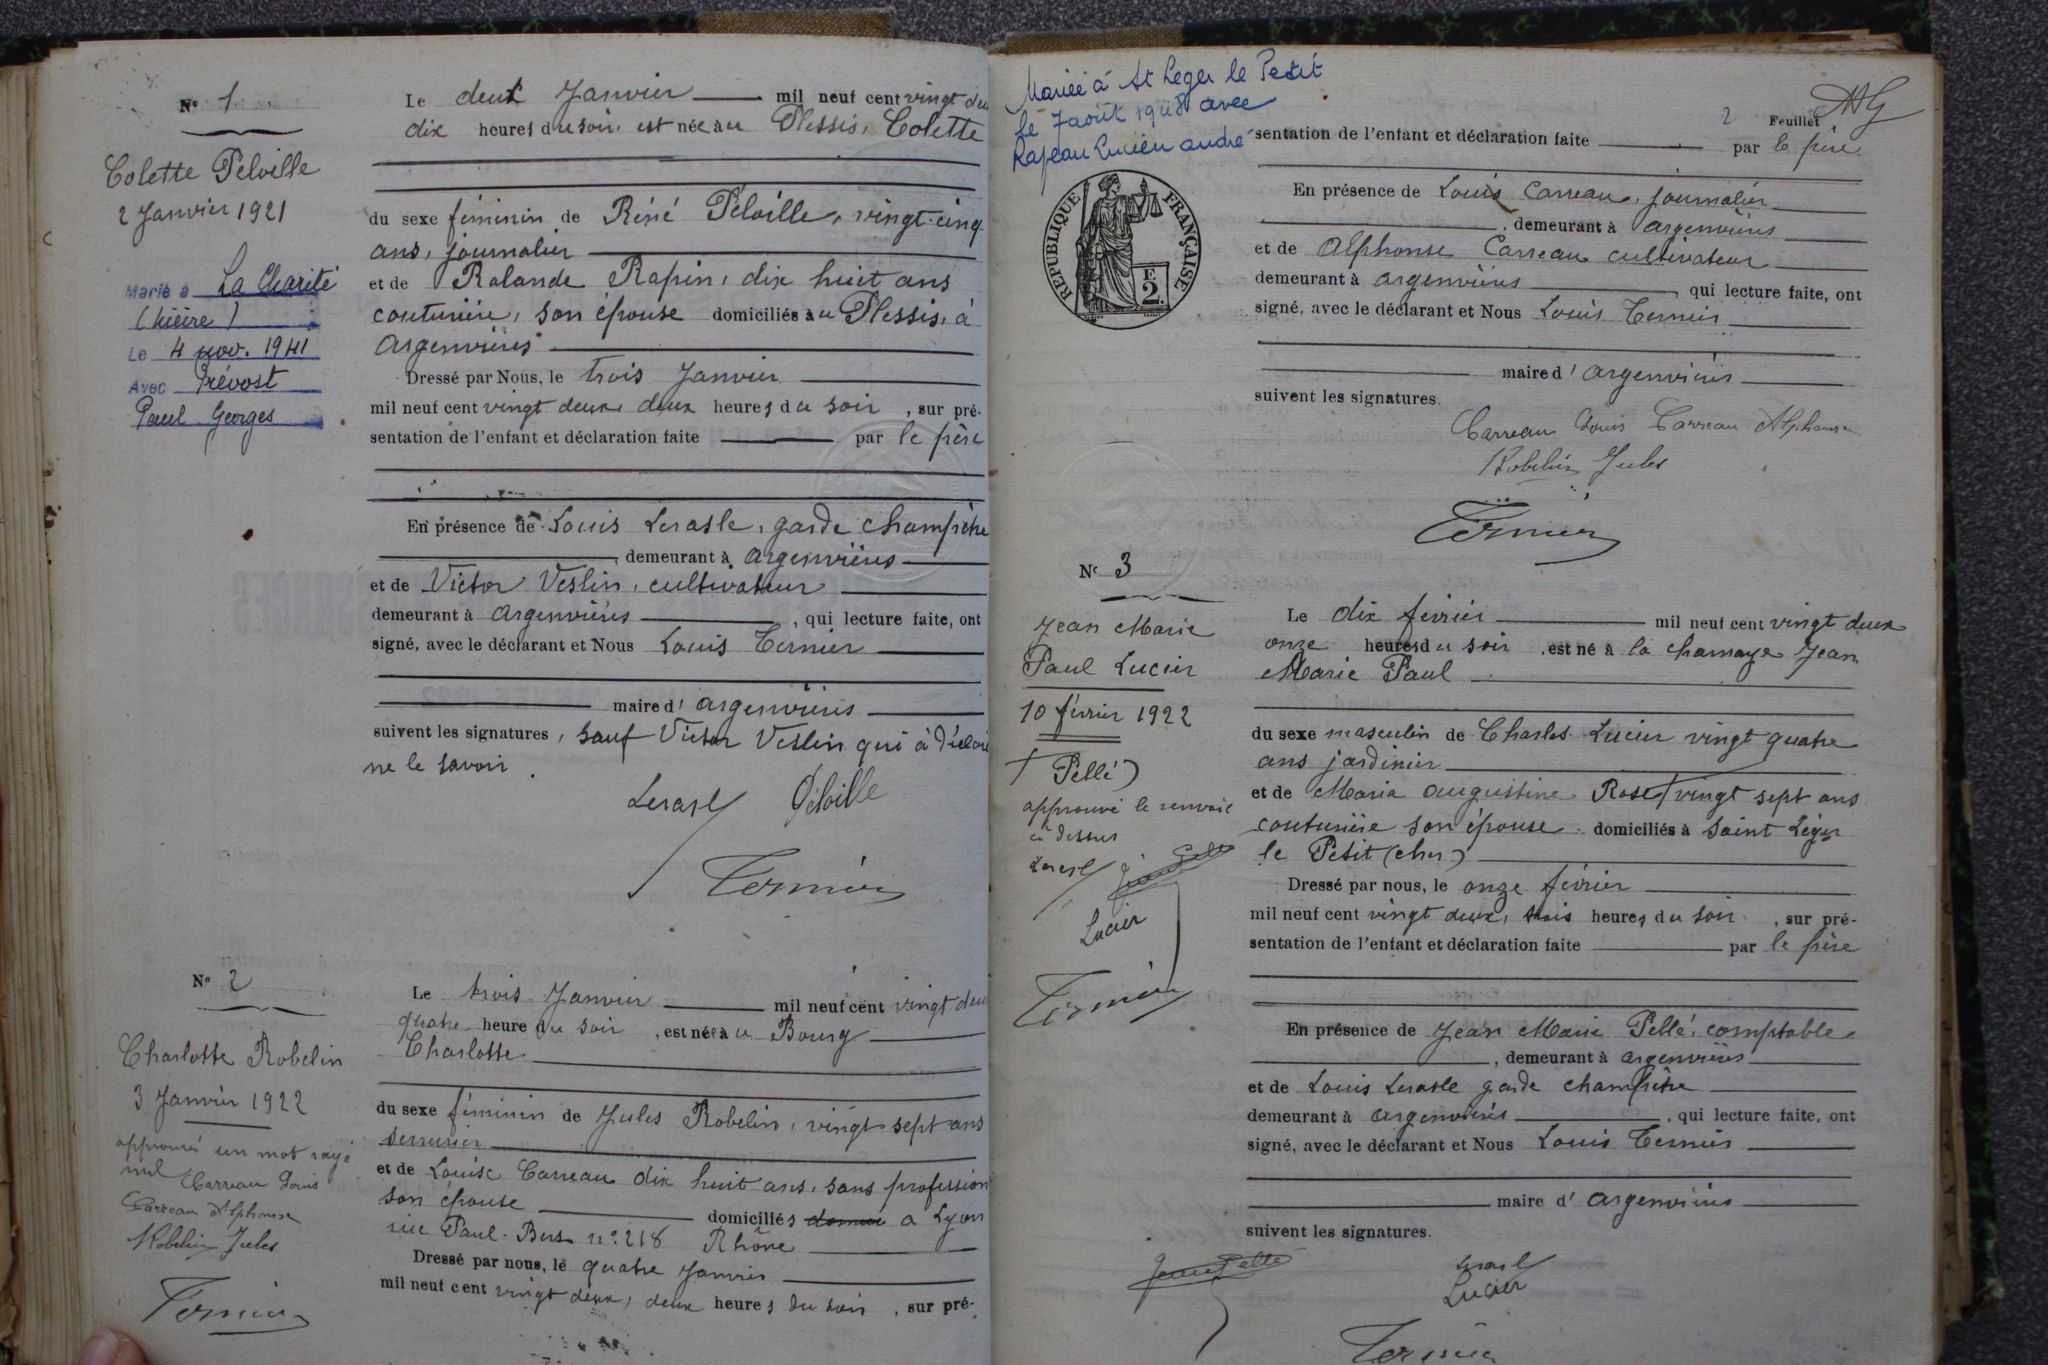 N° 1
Colette Peloille
2 Janvier 1921
Marié à La Charité
(Nièvre)
Le 4 nov. 1941
Avec Prévost
Paul Georges
Le deux Janvier mil neuf cent vingt deu
dix heures du soir, est née au Plessis, Colette
du sexe féminin de Réné Péloille, vingt-cinq
ans, journalier
et de Rolande Rapin, dix huit ans
couturière, son épouse domiciliés au Plessis, à
Argenvières
Dressé par Nous, le trois Janvier
mil neuf cent vingt deux, deux heures du soir, sur pré-
sentation de l'enfant et déclaration faite par le père
En présence de Louis Lerasle, garde champêtre
demeurant à Argenvières
et de Victor Veslin, cultivateur
demeurant à Argenvières, qui lecture faite, ont
signé, avec le déclarant et Nous Louis Ternier
maire d'Argenvières
suivent les signatures, sauf Victor Veslin qui à déclaré
ne le savoir.
Lerasle Péloille
Ternier
N° 2
Charlotte Robelin
3 Janvier 1922
approuvé un mot rayé
nul
Carreau Louis
Carreau Alphonse
Robelin Jules
Ternier
Le trois Janvier mil neuf cent vingt deu
quatre heure du soir, est née au Bourg
Charlotte
du sexe féminin de Jules Robelin, vingt sept ans
serrurier
et de Louise Carreau dix huit ans, sans profession
son épouse domiciliés à Lyon
rue Paul-Bert n° 218 Rhône
Dressé par nous, le quatre Janvier
mil neuf cent vingt deux, deux heures du soir, sur pré-
Mariée à St Leger le Petit
le 7 août 1948 avec
Rapeau Lucien andré
2 Feuillet
sentation de l'enfant et déclaration faite par le père
REPUBLIQUE FRANÇAISE
F.
2.
En présence de Louis Carreau, journalier
demeurant à Argenvières
et de Alphonse Carreau cultivateur
demeurant à Argenvières qui lecture faite, ont
signé, avec le déclarant et Nous Louis Ternier
maire d'Argenvières
suivent les signatures.
Carreau Louis Carreau Alphonse
Robelin Jules
Ternier
N° 3
Jean Marie
Paul Lucier
10 février 1922
Pellé)
approuvé le renvoi
ci dessus
Lerasle
Lucier
Ternier
Le dix février mil neuf cent vingt deux
onze heures du soir, est né à la charnaye Jean
Marie Paul
du sexe masculin de Charles Lucier vingt quatre
ans jardinier
et de Maria Augustine Rose vingt sept ans
couturière son épouse domiciliés à Saint Léger
le Petit (cher)
Dressé par nous, le onze février
mil neuf cent vingt deux, trois heures du soir, sur pré-
sentation de l'enfant et déclaration faite par le père
En présence de Jean Marie Pellé, comptable
demeurant à Argenvières
et de Louis Lerasle garde champêtre
demeurant à Argenvières, qui lecture faite, ont
signé, avec le déclarant et Nous Louis Ternier
maire d'Argenvières
suivent les signatures.
Jean Pellé
Lerasle
Lucier
Ternier